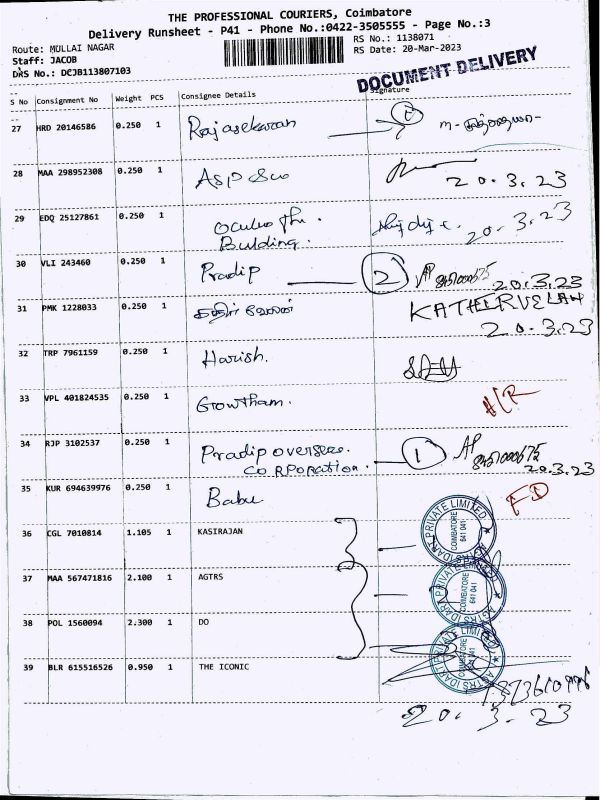 THE PROFESSIONAL COURIERS, Coimbatore
Delivery Runsheet - P41 - Phone No.:0422-3505555 - Page No.:3
Route: MULLAI NAGAR
RS No.: 1138071
Staff: JACOB
RS Date: 20-Mar-2023
DRS No.: DCJB113807103
DOCUMENT DELIVERY
S No Consignment No Weight PCS Consignee Details Signature
27 HRD 20146586 0.250 1 Rajasekaran
28 MAA 298952308 0.250 1 20.3.23
29 EDQ 25127861 0.250 1 20.3.23
Building.
30 VLI 243460 0.250 1 Pradip 2 20.3.23
31 PMK 1228033 0.250 1 KATHIRVELAN
20.3.23
32 TRP 7961159 0.250 1 Harish.
33 VPL 401824535 0.250 1 Growtham.
34 RJP 3102537 0.250 1 Pradip overseas 1
CORPORATION. 20.3.23
35 KUR 694639976 0.250 1 Babu
36 CGL 7010814 1.105 1 KASIRAJAN
37 MAA 567471816 2.100 1 AGTRS
38 POL 1560094 2.300 1 DO
39 BLR 615516526 0.950 1 THE ICONIC
COIMBATORE
641 041
20.3.23